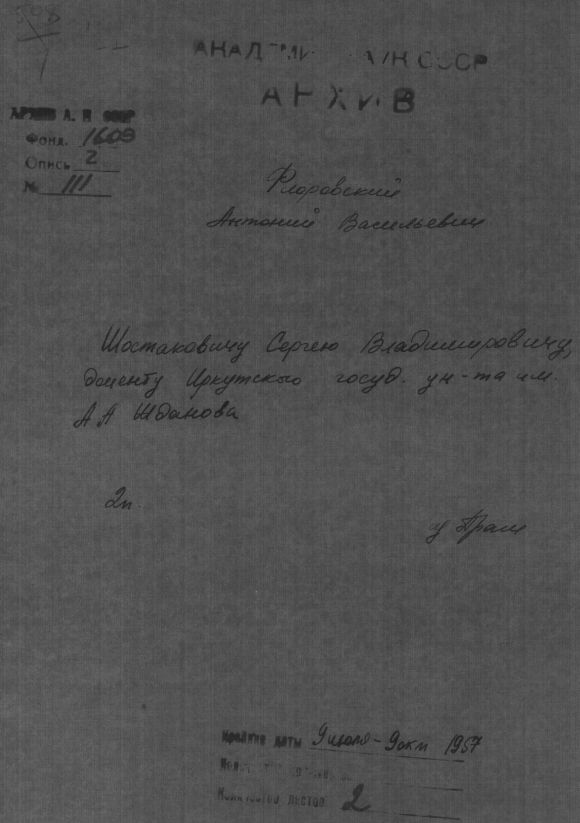 598
АКАДЕМИ НАУК СССР
АРХИВ
АРХИВ А. Н. СССР
Фонд. 1609
Опись 2
№ 111
Флоровский
Антоний Васильевич
Шостаковичу Сергею Владимировичу,
доценту Иркутского госуд. ун-та им.
А А Жданова
2п.
г Прага
Крайние даты 9 июля - 9 окт 1957
Количество листов 2